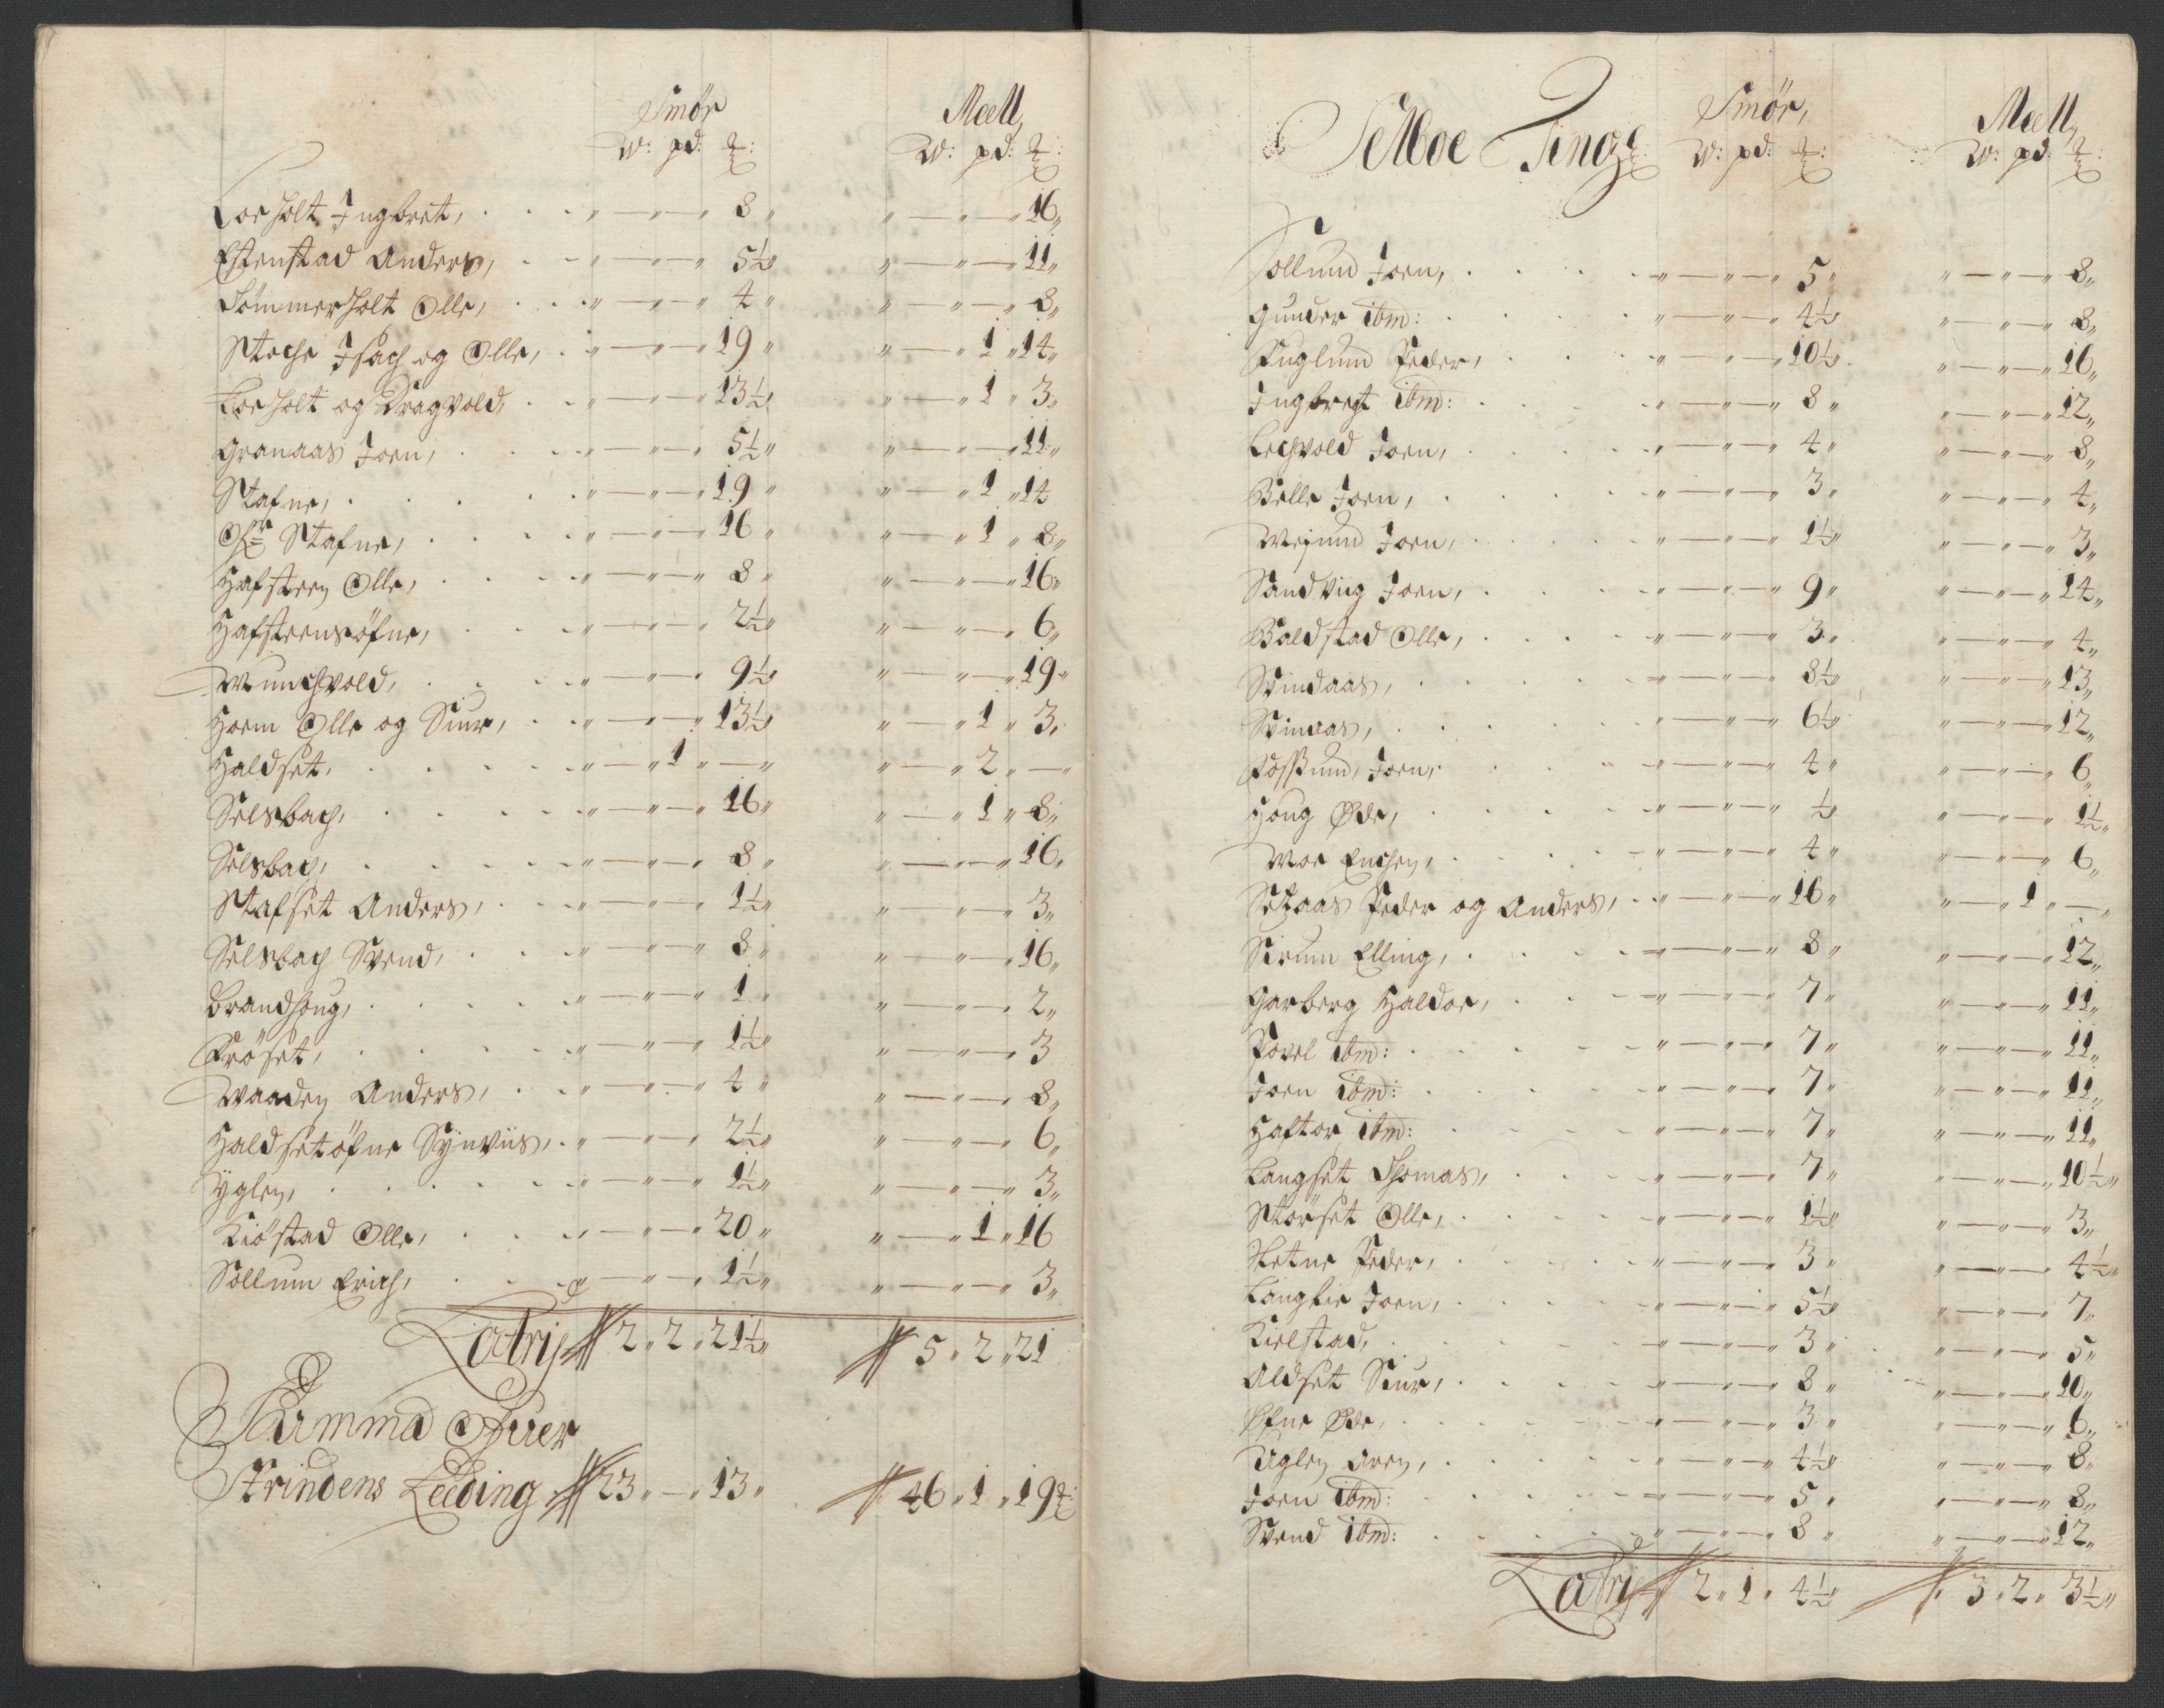 Smør Meell
W: pd: ℔: W: pd: ℔:
Lorholt Ingbret, . . . „ — „ — „ 8 „ „ — „ — „ 16„
Estenstad Anders, . . „ — „ — „ 5½„ „ — „ — „ 11„
Sommerholt Olle, . . . „ — „ — „ 4 „ „ — „ — „ 8„
Stoche Isach og Olle, . „ — „ — „ 19 „ „ — „ 1 „ 14„
Lorholt og Dragvold, . . „ — „ — „ 13½„ „ — „ 1 „ 3„
Granaas Joen, . . . „ — „ — „ 5½„ „ — „ — „ 11„
Stafne, . . . . . „ — „ — „ 19 „ „ — „ 1 „ 14
Øfr Stafne, . . . . „ — „ — „ 16 „ „ — „ 1 „ 8„
Hafsteen Olle, . . . . „ — „ — „ 8 „ „ — „ — „ 16„
Hafsteensøfne, . . . „ — „ — „ 2½„ „ — „ — „ 6„
Munchvold, . . . . „ — „ — „ 9½„ „ — „ — „ 19„
Hoem Olle og Siur, . . „ — „ — „ 13½„ „ — „ 1 „ 3„
Haldset, . . . . . „ — „ 1 „ — „ „ — „ 2 „ — „
Selsbach, . . . . . „ — „ — „ 16 „ „ — „ 1 „ 8„
Selsbach, . . . . . „ — „ — „ 8 „ „ — „ — „ 16„
Stafset Anders, . . . „ — „ — „ 1½„ „ — „ — „ 3„
Selsbach Svend, . . . „ — „ — „ 8 „ „ — „ — „ 16„
Brandhoug, . . . . . „ — „ — „ 1 „ „ — „ — „ 2„
Frøset, . . . . . „ — „ — „ 1½„ „ — „ — „ 3
Waaden Anders, . . . „ — „ — „ 4 „ „ — „ — „ 8„
Haldsetøfne Synviis, . „ — „ — „ 2½„ „ — „ — „ 6„
Yglen, . . . . . „ — „ — „ 1½„ „ — „ — „ 3„
Kiøstad Olle, . . . „ — „ — „ 20 „ „ — „ 1 „ 16
Sollum Erich, . . . „ — „ — „ 1½„ „ — „ — „ 3„
Latris 2„ 2„ 21½„ 5„ 2„ 21
Summa Ofuer
Strindens Leeding 23„ — „ 13„ 46„ 1„ 19℔:
Selboe Tinge: Smør, Meell,
W: pd: ℔: W: pd: ℔:
Sollund Joen, . . . „ — „ — „ 5 „ „ — „ — „ 8„
Gunder ibm: . . . „ — „ — „ 4½„ „ — „ — „ 8„
Fuglum Peder, . . . „ — „ — „ 10½„ „ — „ — „ 16„
Ingbregt ibm: . . . „ — „ — „ 8 „ „ — „ — „ 12„
Lechvold Joen, . . . „ — „ — „ 4 „ „ — „ — „ 8„
Belle Joen, . . . . „ — „ — „ 3 „ „ — „ — „ 4„
Mejund Joen, . . . . „ — „ — „ 1½„ „ — „ — „ 3„
Sandviig Joen, . . . „ — „ — „ 9 „ „ — „ — „ 14„
Baldstad Olle, . . . „ — „ — „ 3 „ „ — „ — „ 4„
Svindaas, . . . . . „ — „ — „ 8½„ „ — „ — „ 13„
Svinaas, . . . . . „ — „ — „ 6½„ „ — „ — „ 12„
Fossum, Joen, . . . „ — „ — „ 4 „ „ — „ — „ 6„
Houg Øde, . . . . „ — „ — „ ½ „ — „ — „ 1½„
Moe Enchen, . . . . „ — „ — „ 4 „ „ — „ — „ 6„
Setaas Peder og Anders, . „ — „ — „ 16 „ „ — „ 1 „ — „
Sirum Elling, . . . „ — „ — „ 8 „ „ — „ — „ 12„
Garberg Haldor, . . . „ — „ — „ 7 „ „ — „ — „ 11„
Povel ibm: . . . . „ — „ — „ 7 „ „ — „ — „ 11„
Joen ibm: . . . . „ — „ — „ 7 „ „ — „ — „ 11„
Haftor ibm: . . . . „ — „ — „ 7 „ „ — „ — „ 11„
Langset Thomas, . . . „ — „ — „ 7 „ „ — „ — „ 10½„
Størset Olle, . . . . „ — „ — „ 1½„ „ — „ — „ 3„
Sletne Peder, . . . . „ — „ — „ 3 „ „ — „ — „ 4½„
Langlie Joen, . . . . „ — „ — „ 5½„ „ — „ — „ 7„
Kielstad, . . . . . „ — „ — „ 3 „ „ — „ — „ 5„
Aldset Siur, . . . . „ — „ — „ 8 „ „ — „ — „ 10„
Øfne Øde, . . . . „ — „ — „ 3 „ „ — „ — „ 6„
Uglen Aren, . . . . „ — „ — „ 4½„ „ — „ — „ 8„
Joen ibm: . . . . „ — „ — „ 5 „ „ — „ — „ 8„
Svend ibm: . . . . „ — „ — „ 8 „ „ — „ — „ 12„
Latris 2„ 1„ 4½„ 3„ 2„ 3½„